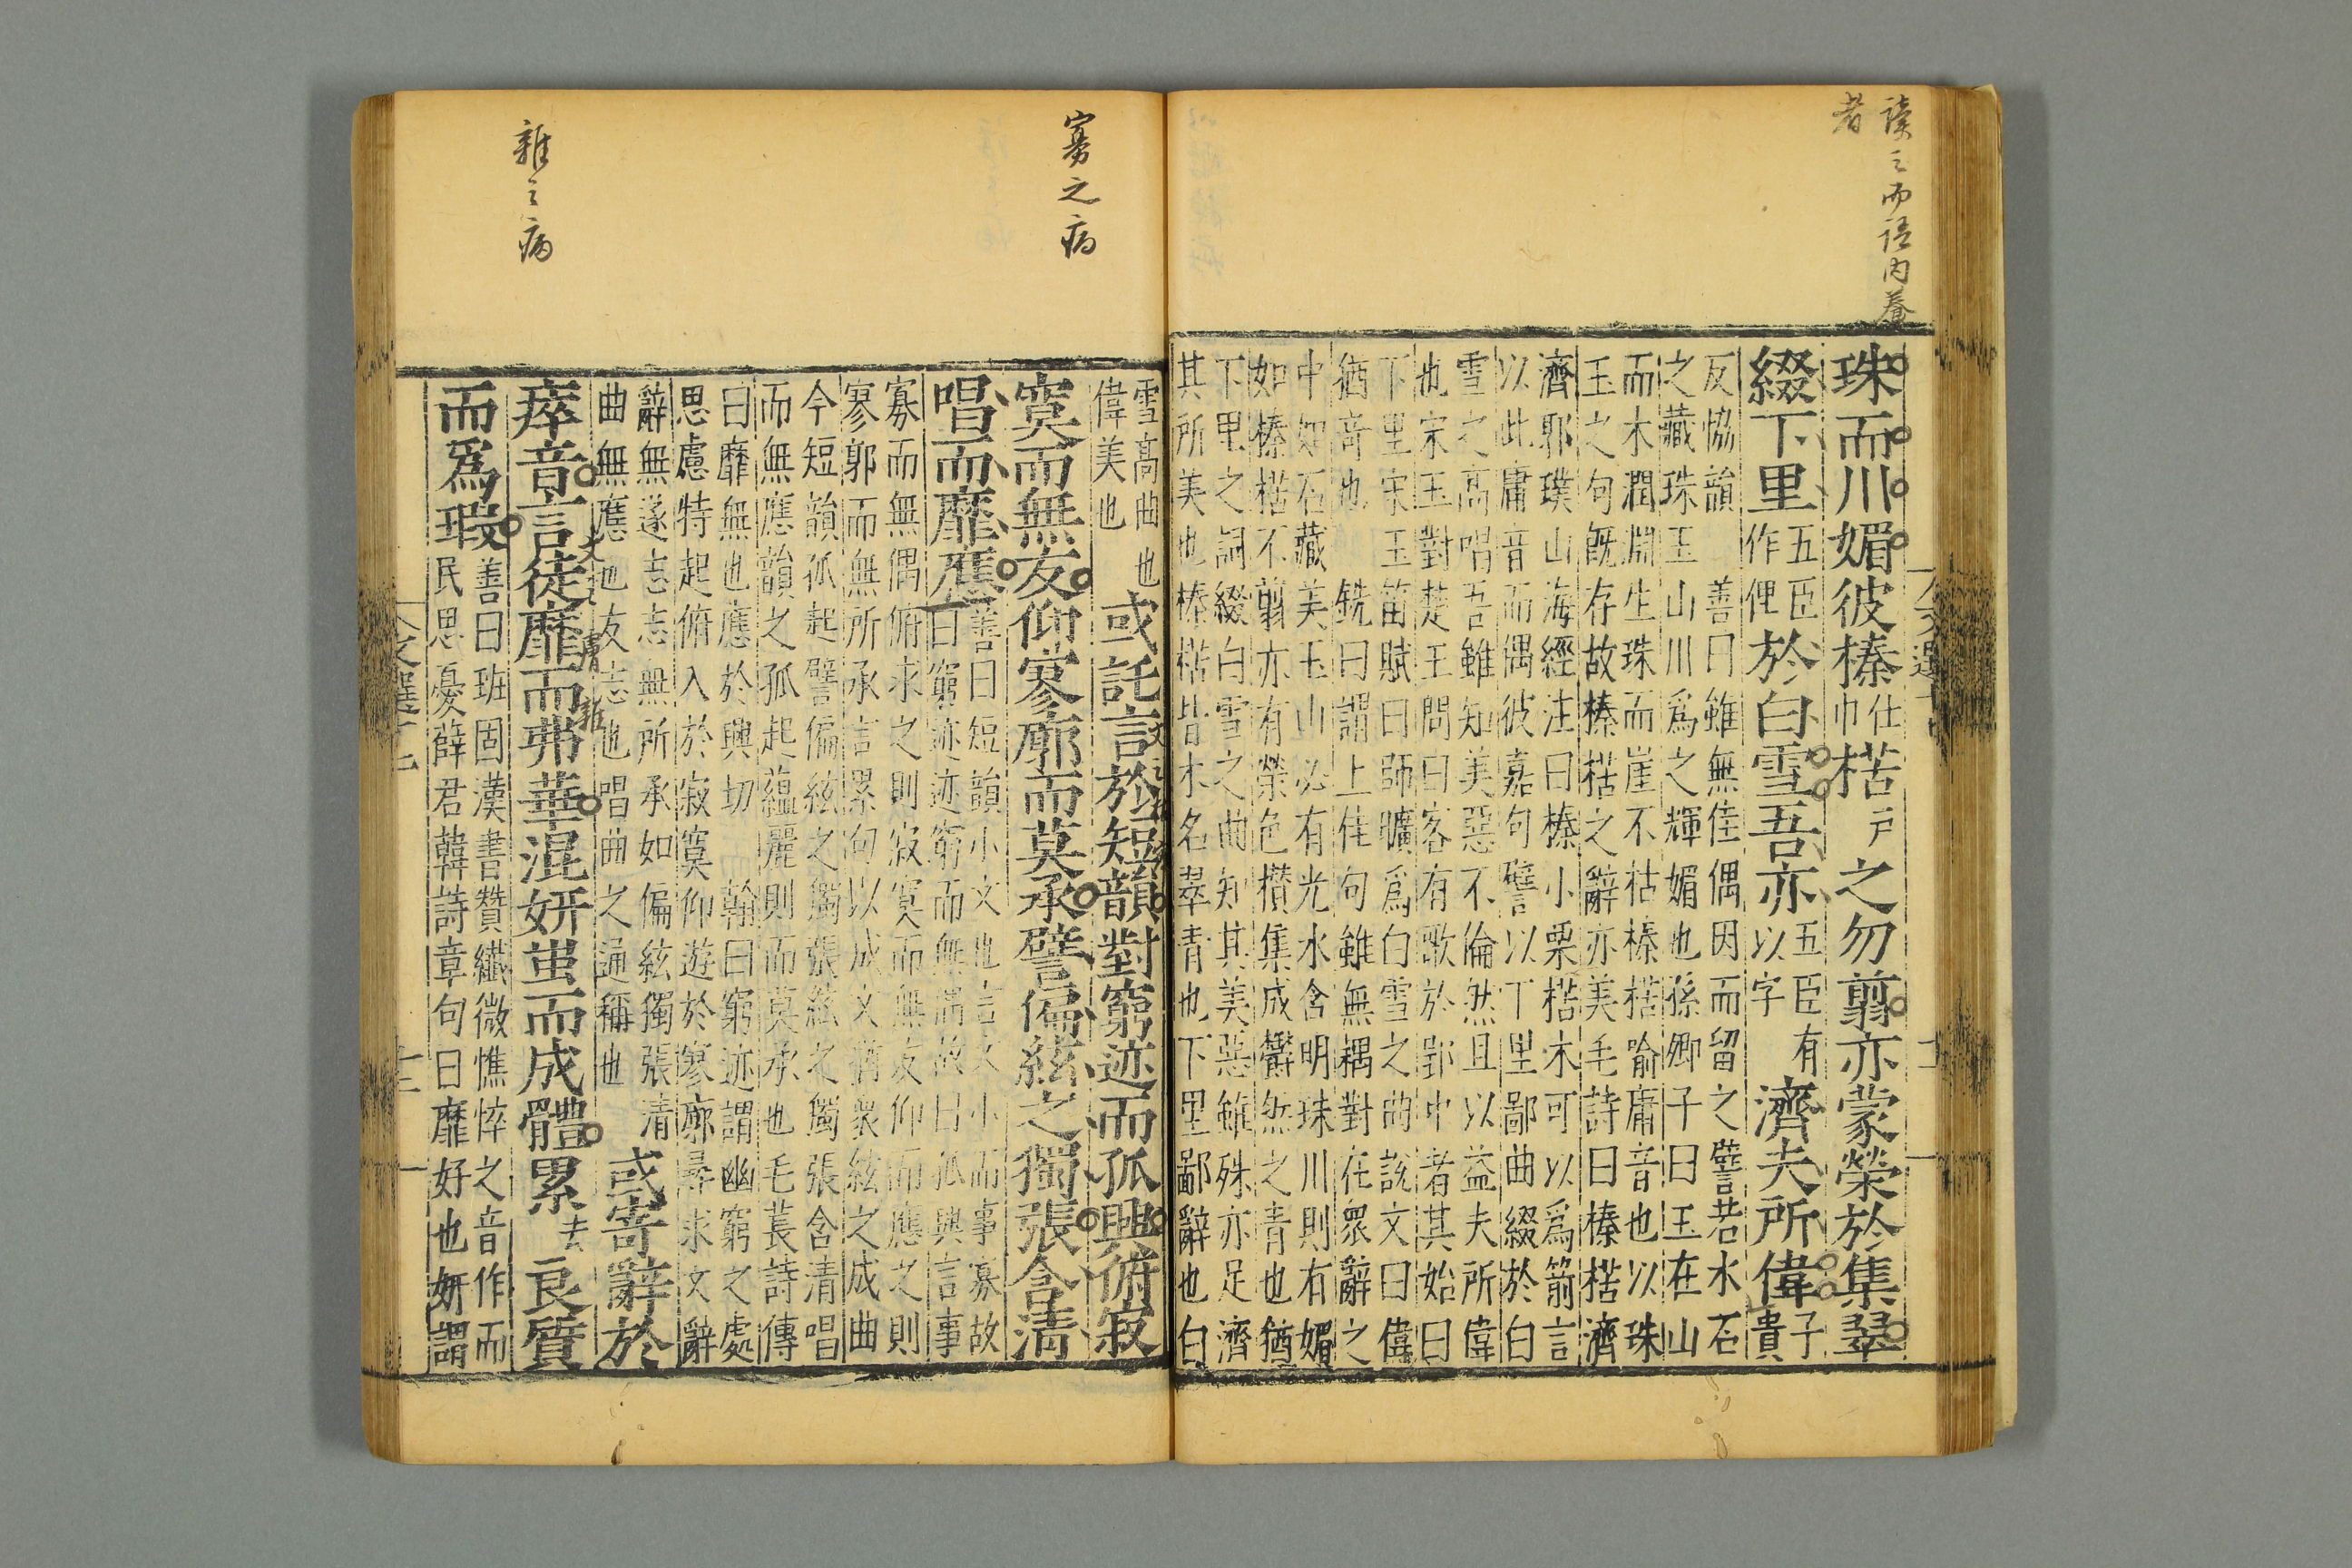 者
珠而川媚彼榛仕巾楛戶之勿翦亦蒙榮於集翠
綴下里五臣作俚於白雪吾亦五臣有以字濟夫所偉子貴
反協韻 善曰雖無佳偶因而留之譬若水石
之藏珠玉山川爲之輝媚也孫卿子曰玉在山
而木潤淵生珠而崖不枯榛楛喻庸音也以珠
玉之句既存故榛楛之辭亦美毛詩曰榛楛濟
濟郭璞山海經注曰榛小栗楛木可以爲箭言
以此庸音而偶彼嘉句譬以下里鄙曲綴於白
雪之高唱吾雖知美惡不倫然且以益夫所偉
也宋玉對楚王問曰客有歌於郢中者其始曰
下里宋玉笛賦曰師曠爲白雪之曲說文曰偉
猶奇也 銑曰謂上佳句雖無耦對在衆辭之
中如石藏美玉山必有光水含明珠川則有媚
如榛楛不翦亦有榮色攢集成欝然之青也猶
下里之詞綴白雪之曲知其美惡雖殊亦足濟
其所美也榛楛皆木名翠青也下里鄙辭也白
寡之病
雜之病
雪高曲也
偉美也
或託言於短韻對窮迹而孤興俯寂
寞而無友仰寥廓而莫承譬偏絃之獨張含清
唱而靡應
善曰短韻小文也言文小而事寡故
曰窮迹迹窮而無偶故曰孤興言事
寡而無偶俯求之則寂寞而無友仰而應之則
寥郭而無所承言累句以成文猶衆絃之成曲
今短韻孤起譬偏絃之獨張絃之獨張含清唱
而無應韻之孤起蘊麗則而莫承也毛萇詩傳
曰靡無也應於興切 翰曰窮迹謂幽窮之處
思慮特起俯入於寂寞仰遊於寥廓尋求文辭
辭無遂志志無所承如偏絃獨張清
曲無應也友志也唱曲之通稱也
或寄辭於
瘁音言徒靡而弗華混妍蚩而成體累去良質
而爲瑕
善曰班固漢書贊纖微憔悴之音作而
民思憂薛君韓詩章句曰靡好也妍謂